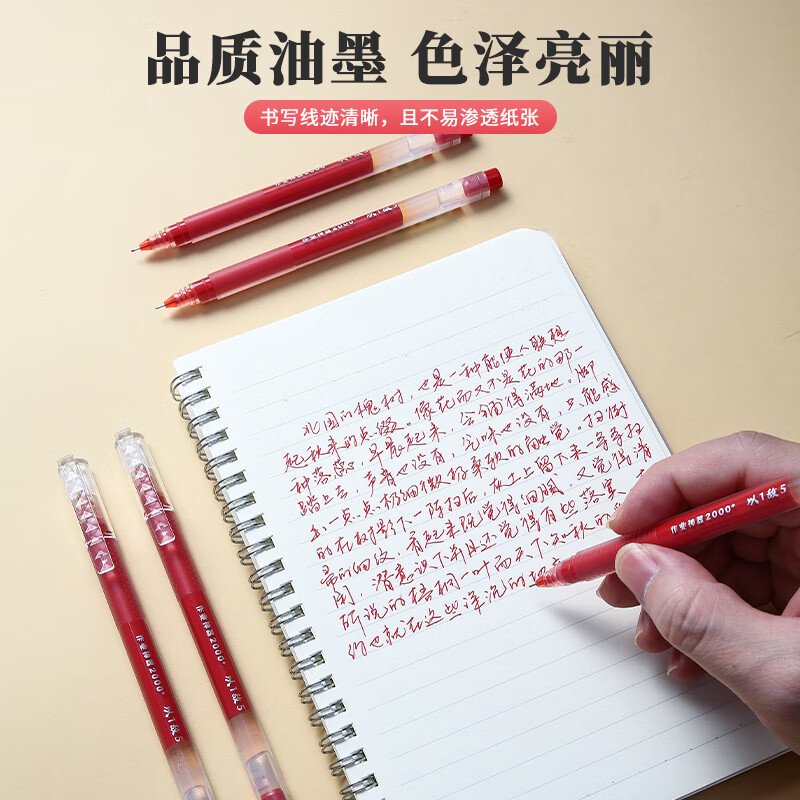 品质油墨 色泽亮丽
书写线迹清晰，且不易渗透纸张
作业神器2000+ 以1敌5
作业神器2000+ 以1敌5
北国的槐树，也是一种能使人联想
起秋来的点缀。像花而又不是花的那一
种落蕊，早晨起来，会铺得满地。脚
踏上去，声音也没有，气味也没有，只能感
出一点点极细微极柔软的触觉。扫街
的在树影下一阵扫后，灰土上留下来一条条扫
帚的丝纹，看起来既觉得细腻，又觉得清
闲，潜意识下并且还觉得有些落寞
所说的梧桐一叶而天下知秋的
约也就在这些深沉的
作业神器2000+ 以1敌5
作业神器2000+ 以1敌5
作业神器2000+ 以1敌5